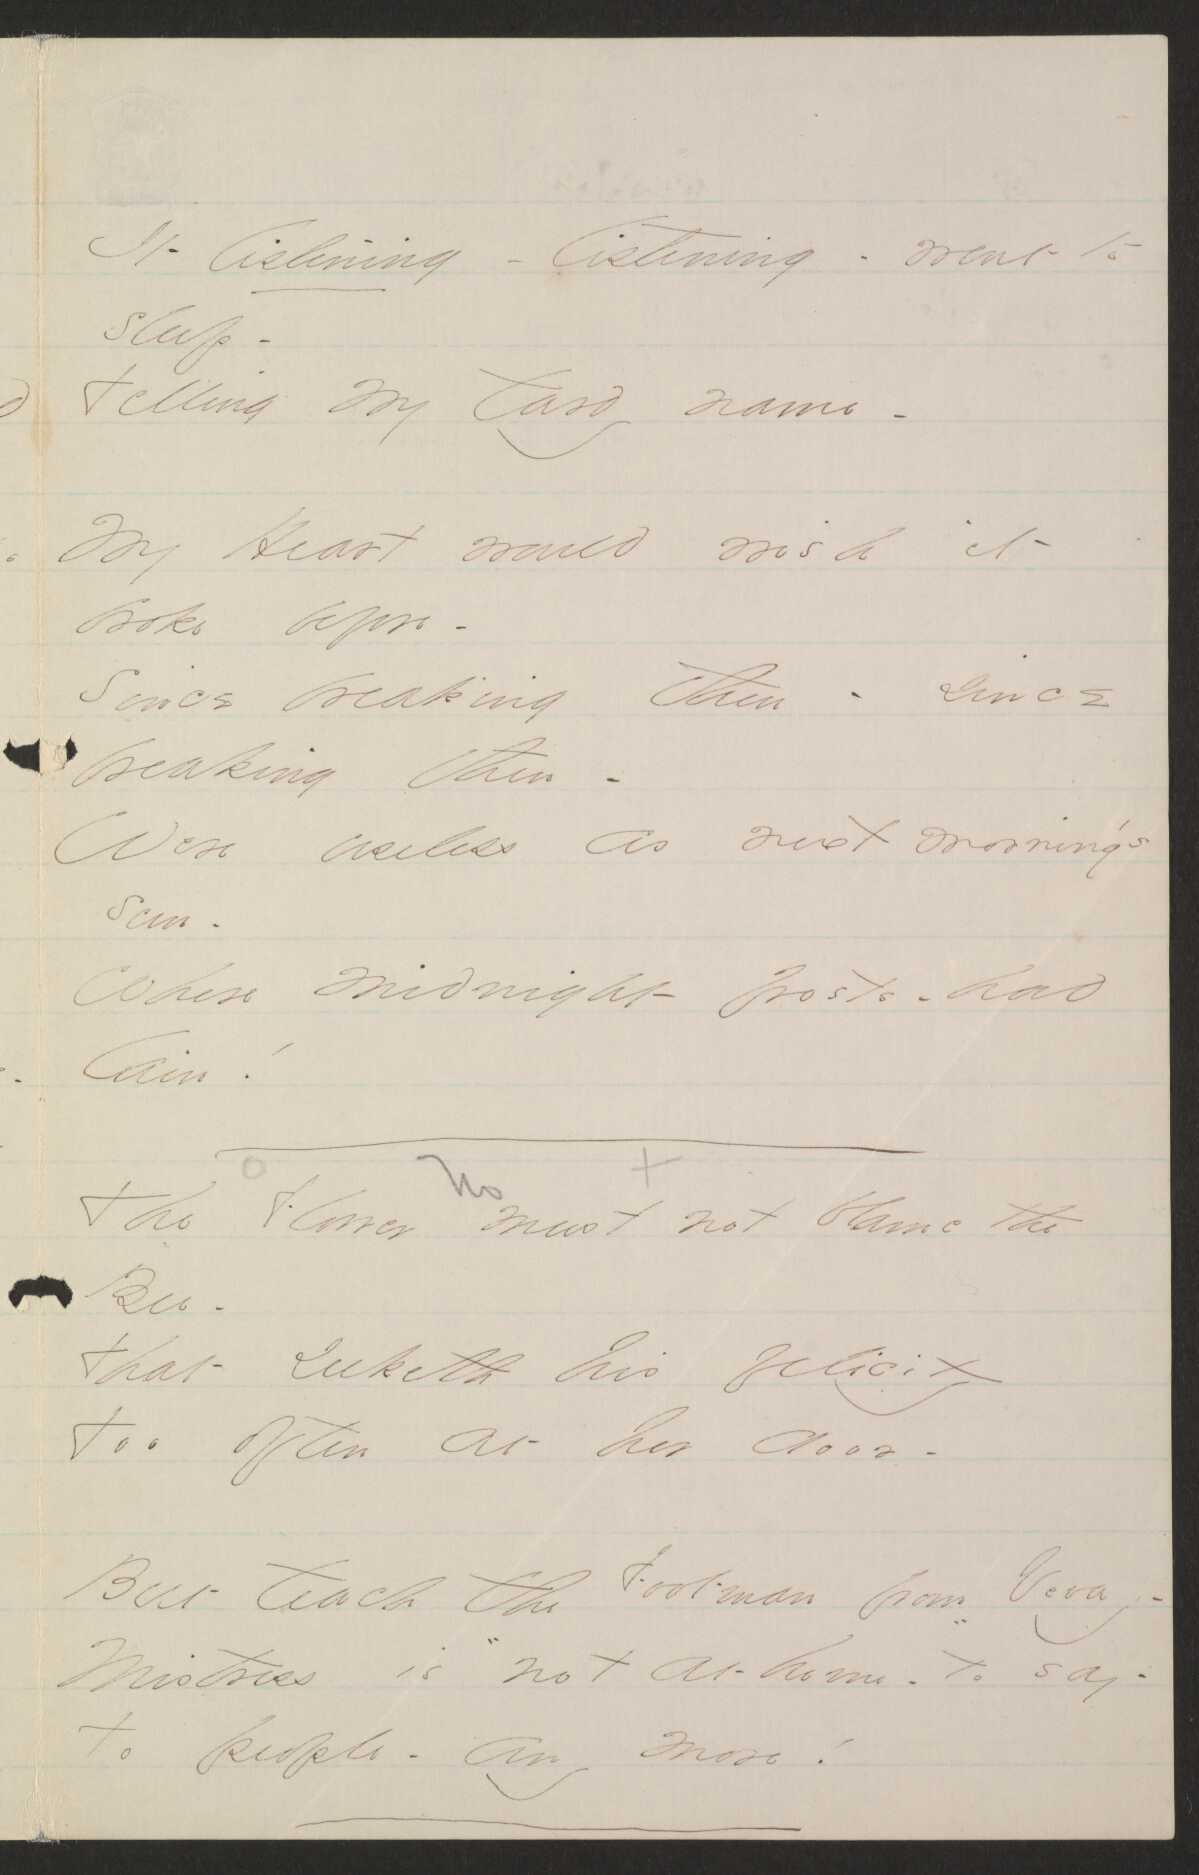 It listening - listening - went to
sleep -
Telling my tardy name -
My Heart would wish it
broke before -
Since breaking then - since
breaking then -
Were useless as next morning's
sun -
Where midnight frosts - had
lain!
o No +
The Flower must not blame the
Bee -
That seeketh his felicity
Too often at her door -
But teach the Footman from Vevay -
Mistress is "not at home" - to say -
To people - any more!